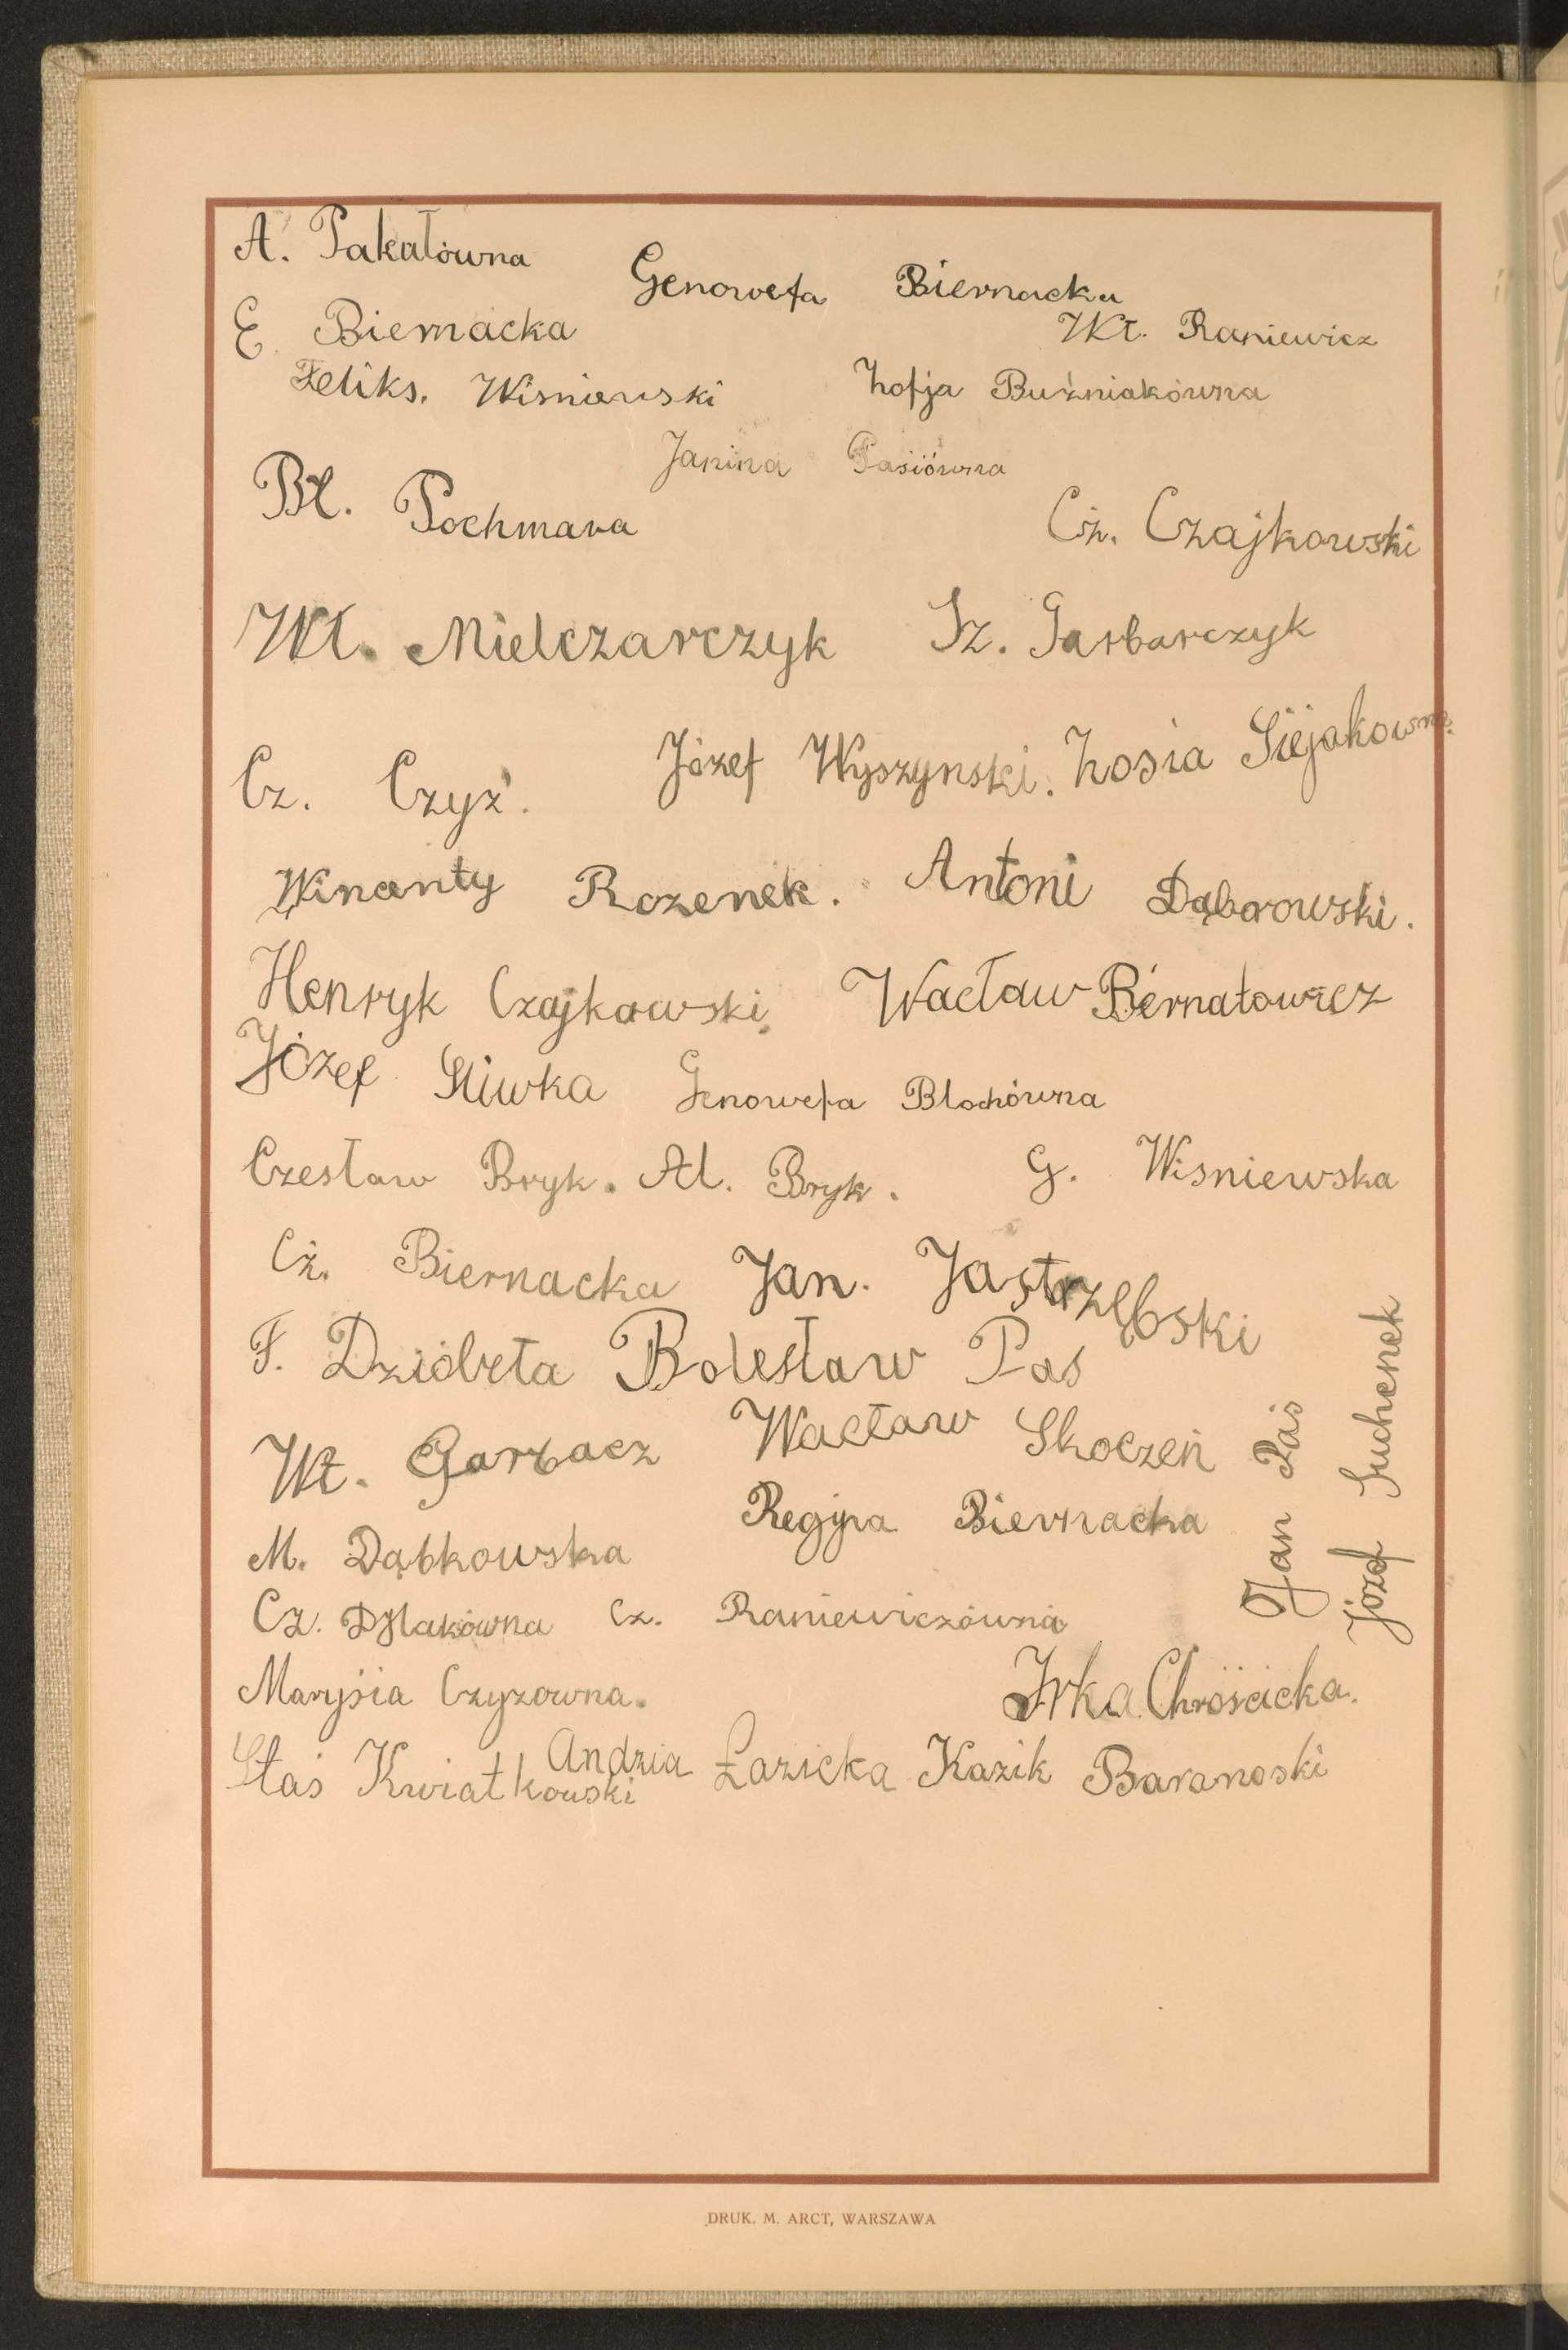 A. Pakałówna
Genowefa Biernacka
E. Biernacka
Wł. Raniewicz
Feliks. Wisniewski
Zofja Buźniakówna
Janina Pasiówna
Bł. Pochmara
Cz. Czajkowski
Wł. Mielczarczyk
Sz. Garbarczyk
Józef Wyszynski.
Zosia Siejakowna.
Cz. Czyż.
Wincenty Rozenek.
Antoni Dąbrowski.
Henryk Czajkowski
Wacław Biernatowicz
Józef Sliwka
Genowefa Blochówna
Czesław Bryk.
Al. Bryk.
G. Wisniewska
Cz. Biernacka
Jan. Jastrzębski
F. Dzióbeta
Bolesław Pas
Wł. Garbacz
Wacław Skoczeń
Jan Paś
Józef Suchenek
Regina Biernacka
M. Dąbkowska
Cz. Raniewiczówna
Marysia Czyzowna.
Irka Chróścicka.
Staś Kwiatkowski
Andzia Łazicka
Kazik Baranoski
DRUK. M. ARCT, WARSZAWA